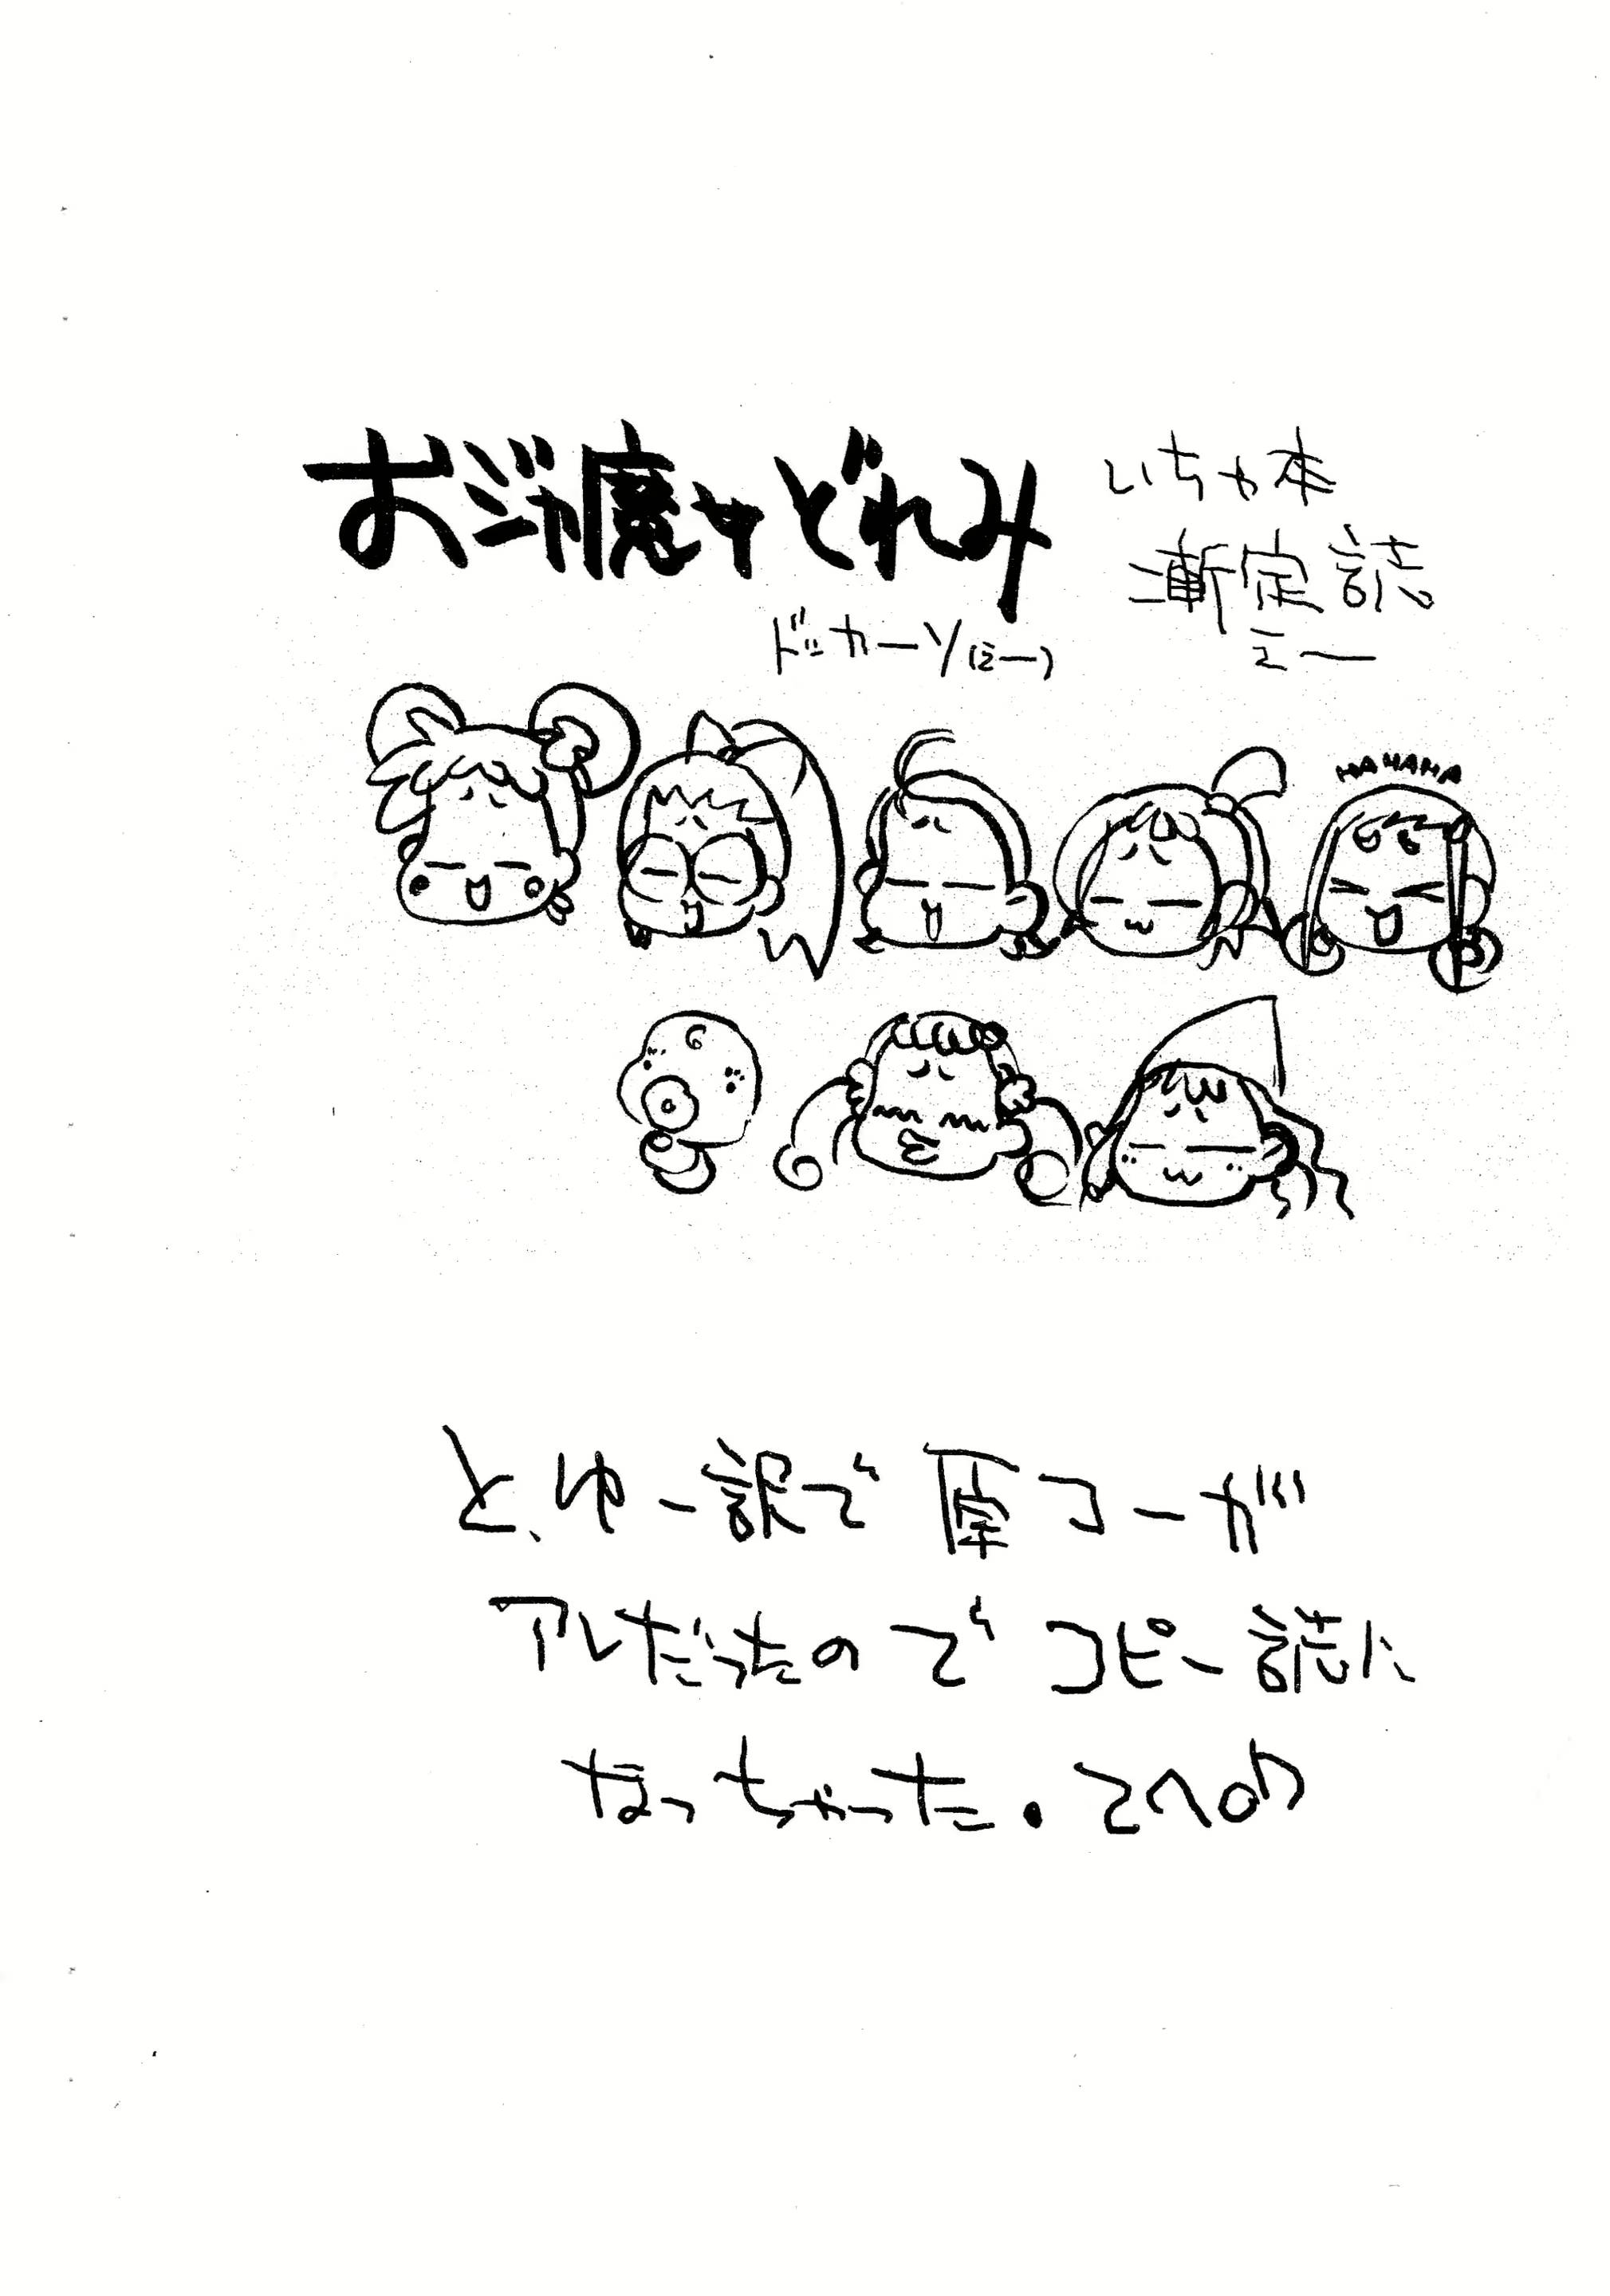 おジャ魔女どれみ
ドッカ～ン(えー)
いちゃ本
漸定誌
えー
HAHAHA
と、ゆー訳で原コーが
アレだったのでコピー誌に
なっちゃった。てへ♪